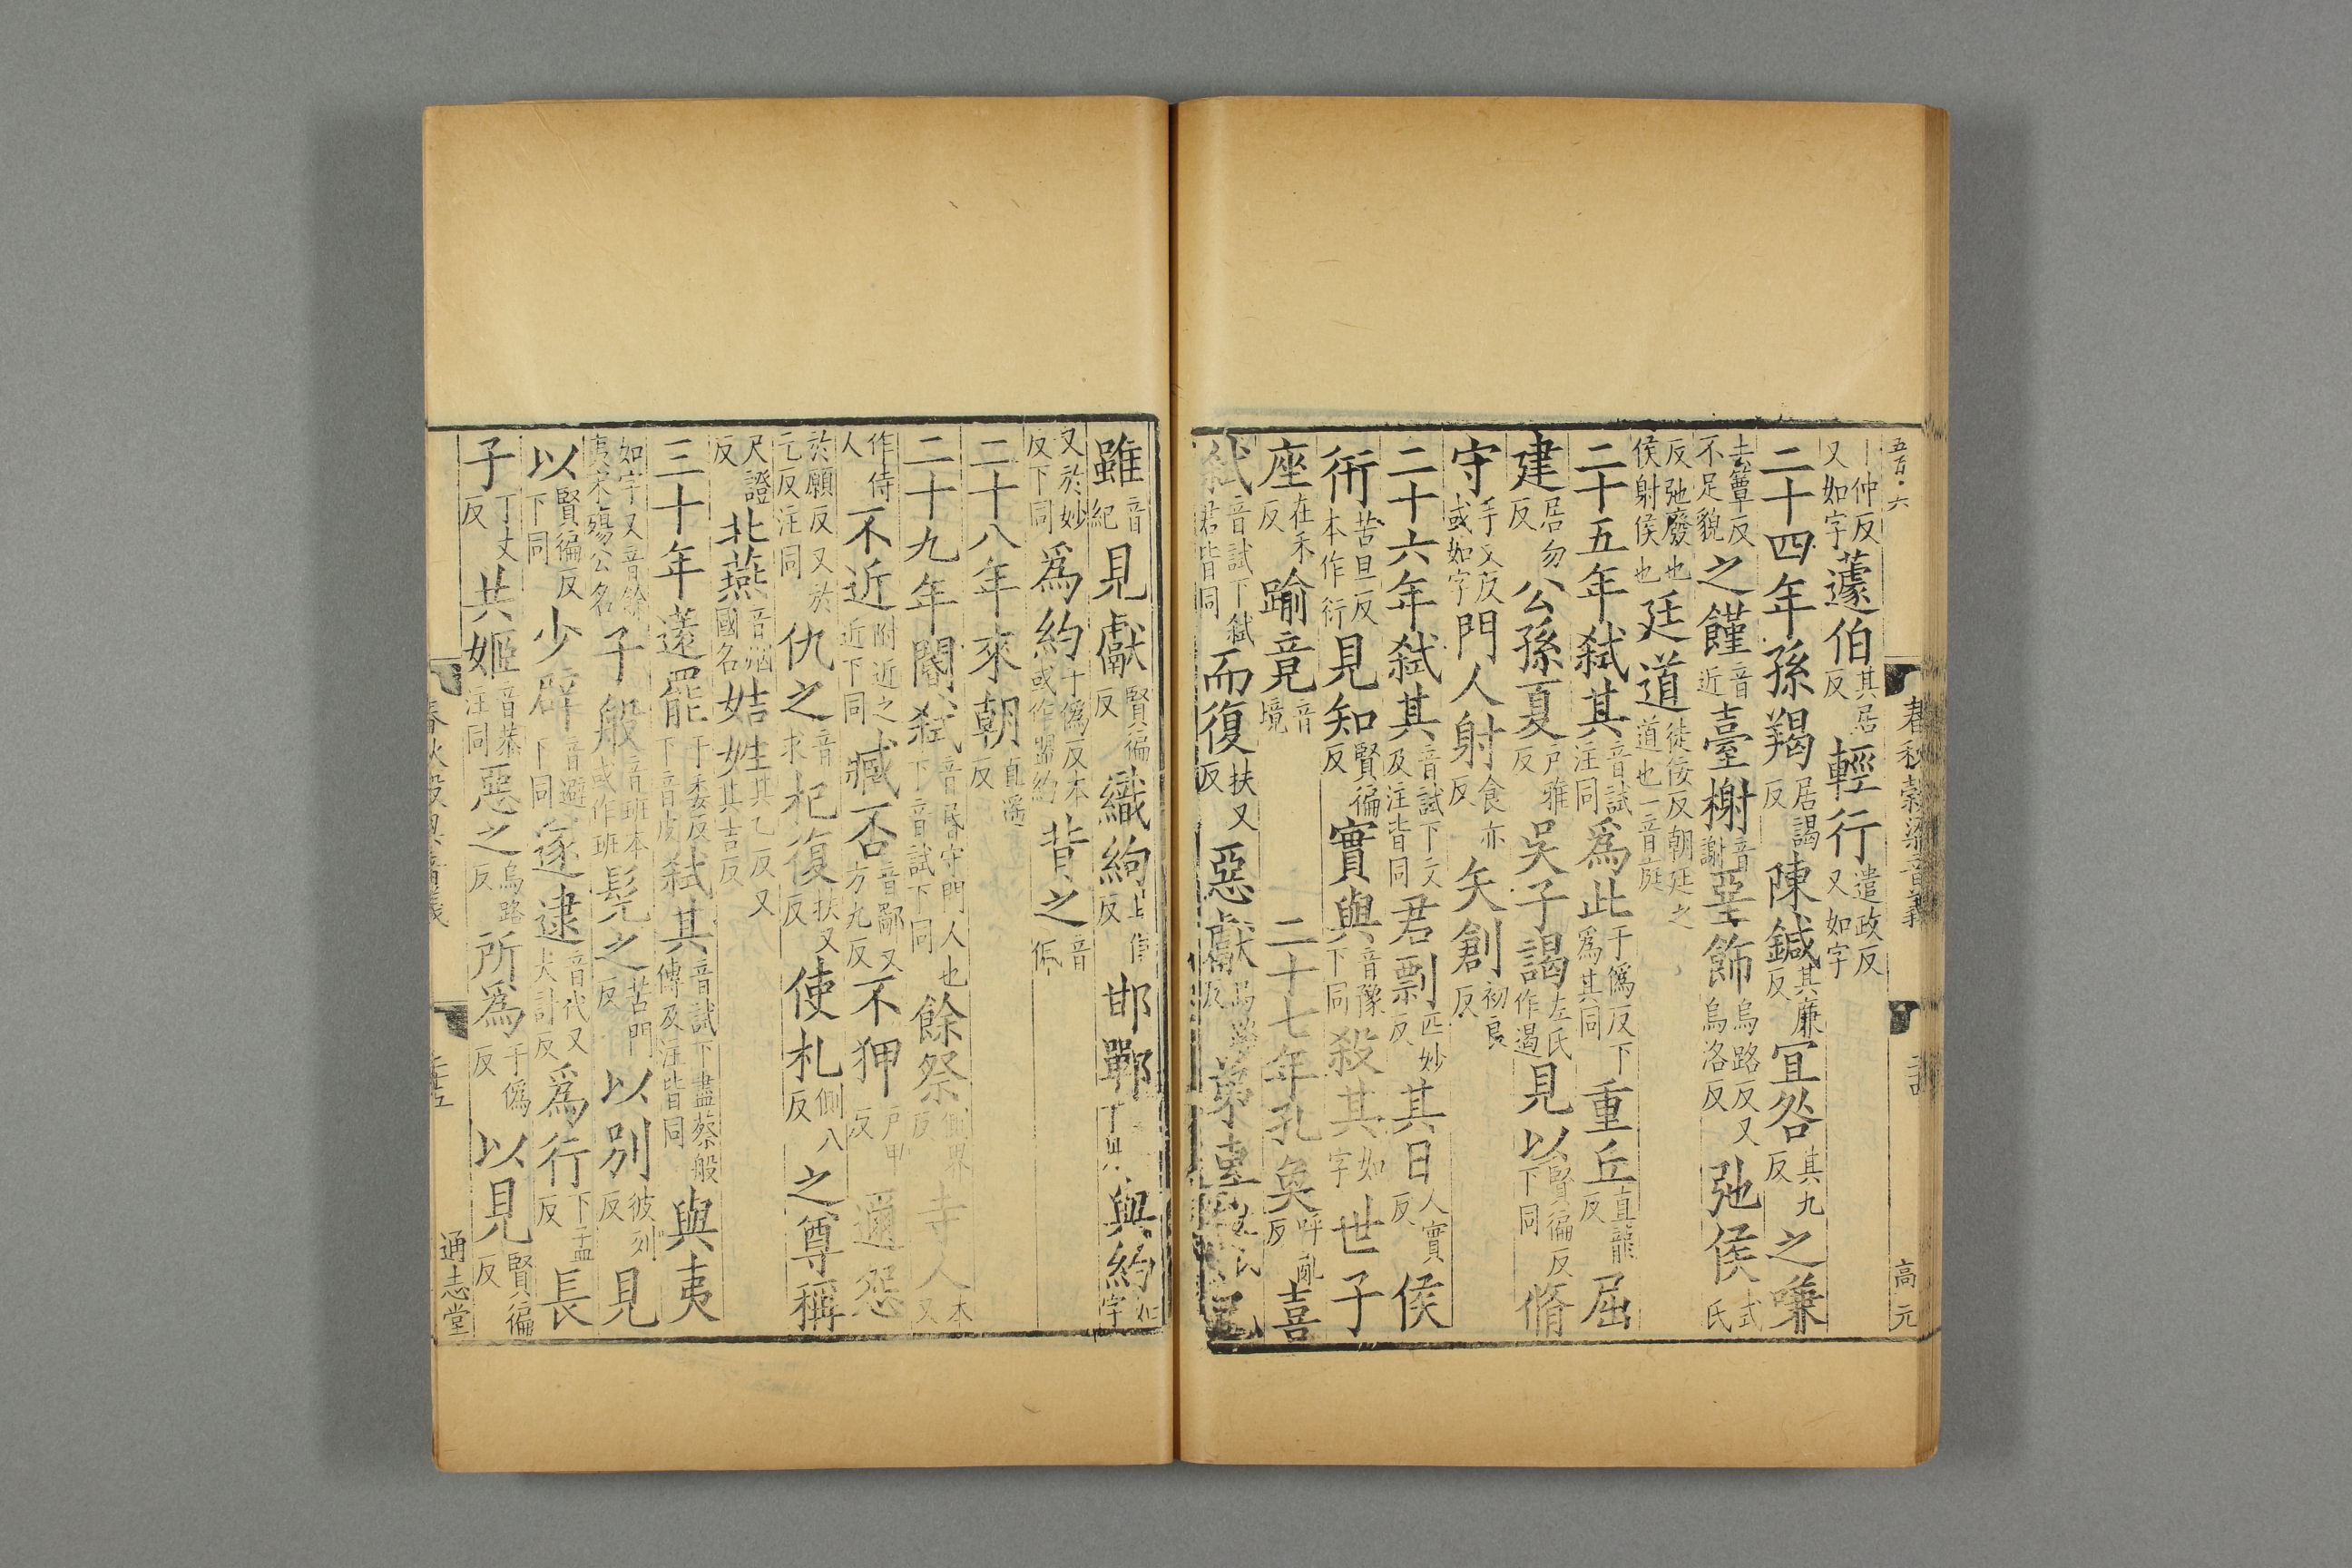 春秋穀梁音義
高元
仲反又如字蘧伯其居反輕行遣政反又如字
二十四年孫羯居謁反陳鍼其廉反宜咎其九反之嗛
去簟反不足貌之饉音近臺榭音謝堊飾烏路反又烏洛反弛侯式氏
反弛廢也侯射侯也廷道徒佞反朝廷之道也一音庭
二十五年弑其音試注同爲此于僞反下爲其同重丘直龍反屈
建居勿反公孫夏戶雅反吳子謁左氏作遏見以賢徧反下同脩
守手又反或如字門人射食亦反矢創初良反
二十六年弑其音試下文及注皆同君剽匹妙反其日人實反侯
衎苦旦反本作衍見知賢徧反實與音豫下同殺其如字世子
座在禾反踰竟音境二十七年孔奐呼亂反喜
弑音試下弑君皆同而復扶又反惡獻
雖音紀見獻賢徧反織絇反邯鄲與約如字
又於妙反下同爲約于僞反本或作盟約背之音佩
二十八年來朝直遥反
二十九年閽弑音昏守門人也下音試下同餘祭側界反寺人本又
作侍人不近附近之近下同臧否音鄙又方九反不狎戶甲反邇怨
於願反又於元反注同仇之音求杞復扶又反使札側八反之尊稱
尺證反北燕音烟國名姞姓其乙反又其吉反
三十年薳罷于委反下音皮弑其音試下盡蔡般傳及注皆同與夷
如字又音餘夷宋殤公名子般音班本或作班髡之苦門反以別彼列反見
以賢徧反下同少辟音避下同逐逮音代又大計反爲行下孟反長
子丁丈反共姬音恭注同惡之烏路反所爲于僞反以見賢徧反
通志堂